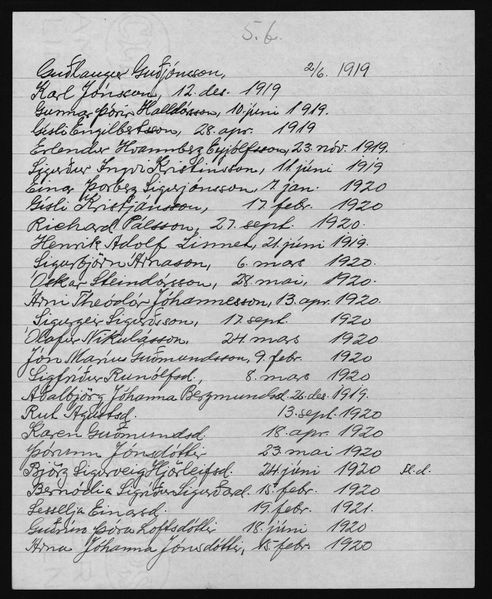 5.6.
Guðlaugur Guðjónsson, 2/6. 1919
Karl Jónsson, 12. des. 1919
Gunnar Þórir Halldórsson, 10. júni 1919.
Gísli Engilbertsson, 28. apr. 1919
Erlendur Hvannberg Eyjólfsson, 23. nóv. 1919.
Sigurður Ingvi Kristinsson, 11. júni 1919
Einar Þorberg Sigurjónsson, 7. jan. 1920
Gísli Kristjánsson, 17. febr. 1920
Richard Pálsson, 27. sept. 1920.
Henrik Adolf Linnet, 21. júni 1919.
Sigurbjörn Árnason, 6. mars 1920.
Óskar Steindórsson, 28. mai, 1920.
Árni Theodór Jóhannesson, 13. apr. 1920.
Sigurgeir Sigurðsson, 17. sept. 1920
Ólafur Nikulásson, 24. mars 1920
Jón Marius Guðmundsson, 9. febr. 1920
Sigfríður Runólfsd., 8. mars 1920
Aðalbjörg Jóhanna Bergmundsd. 26. des. 1919.
Rut Ágústsd. 13. sept. 1920
Karen Guðmundsd. 18. apr. 1920
Þórunn Jónsdóttir 23. mai 1920
Björg Sigurveig Hjörleifsd. 24. júni 1920
Bernódia Sigríður Sigurðard. 15. febr. 1920
Sesselja Einarsd. 19. febr. 1921.
Guðrún Þóra Loftsdóttir 18. júni 1920
Anna Jóhanna Jónsdóttir, 15. febr. 1920